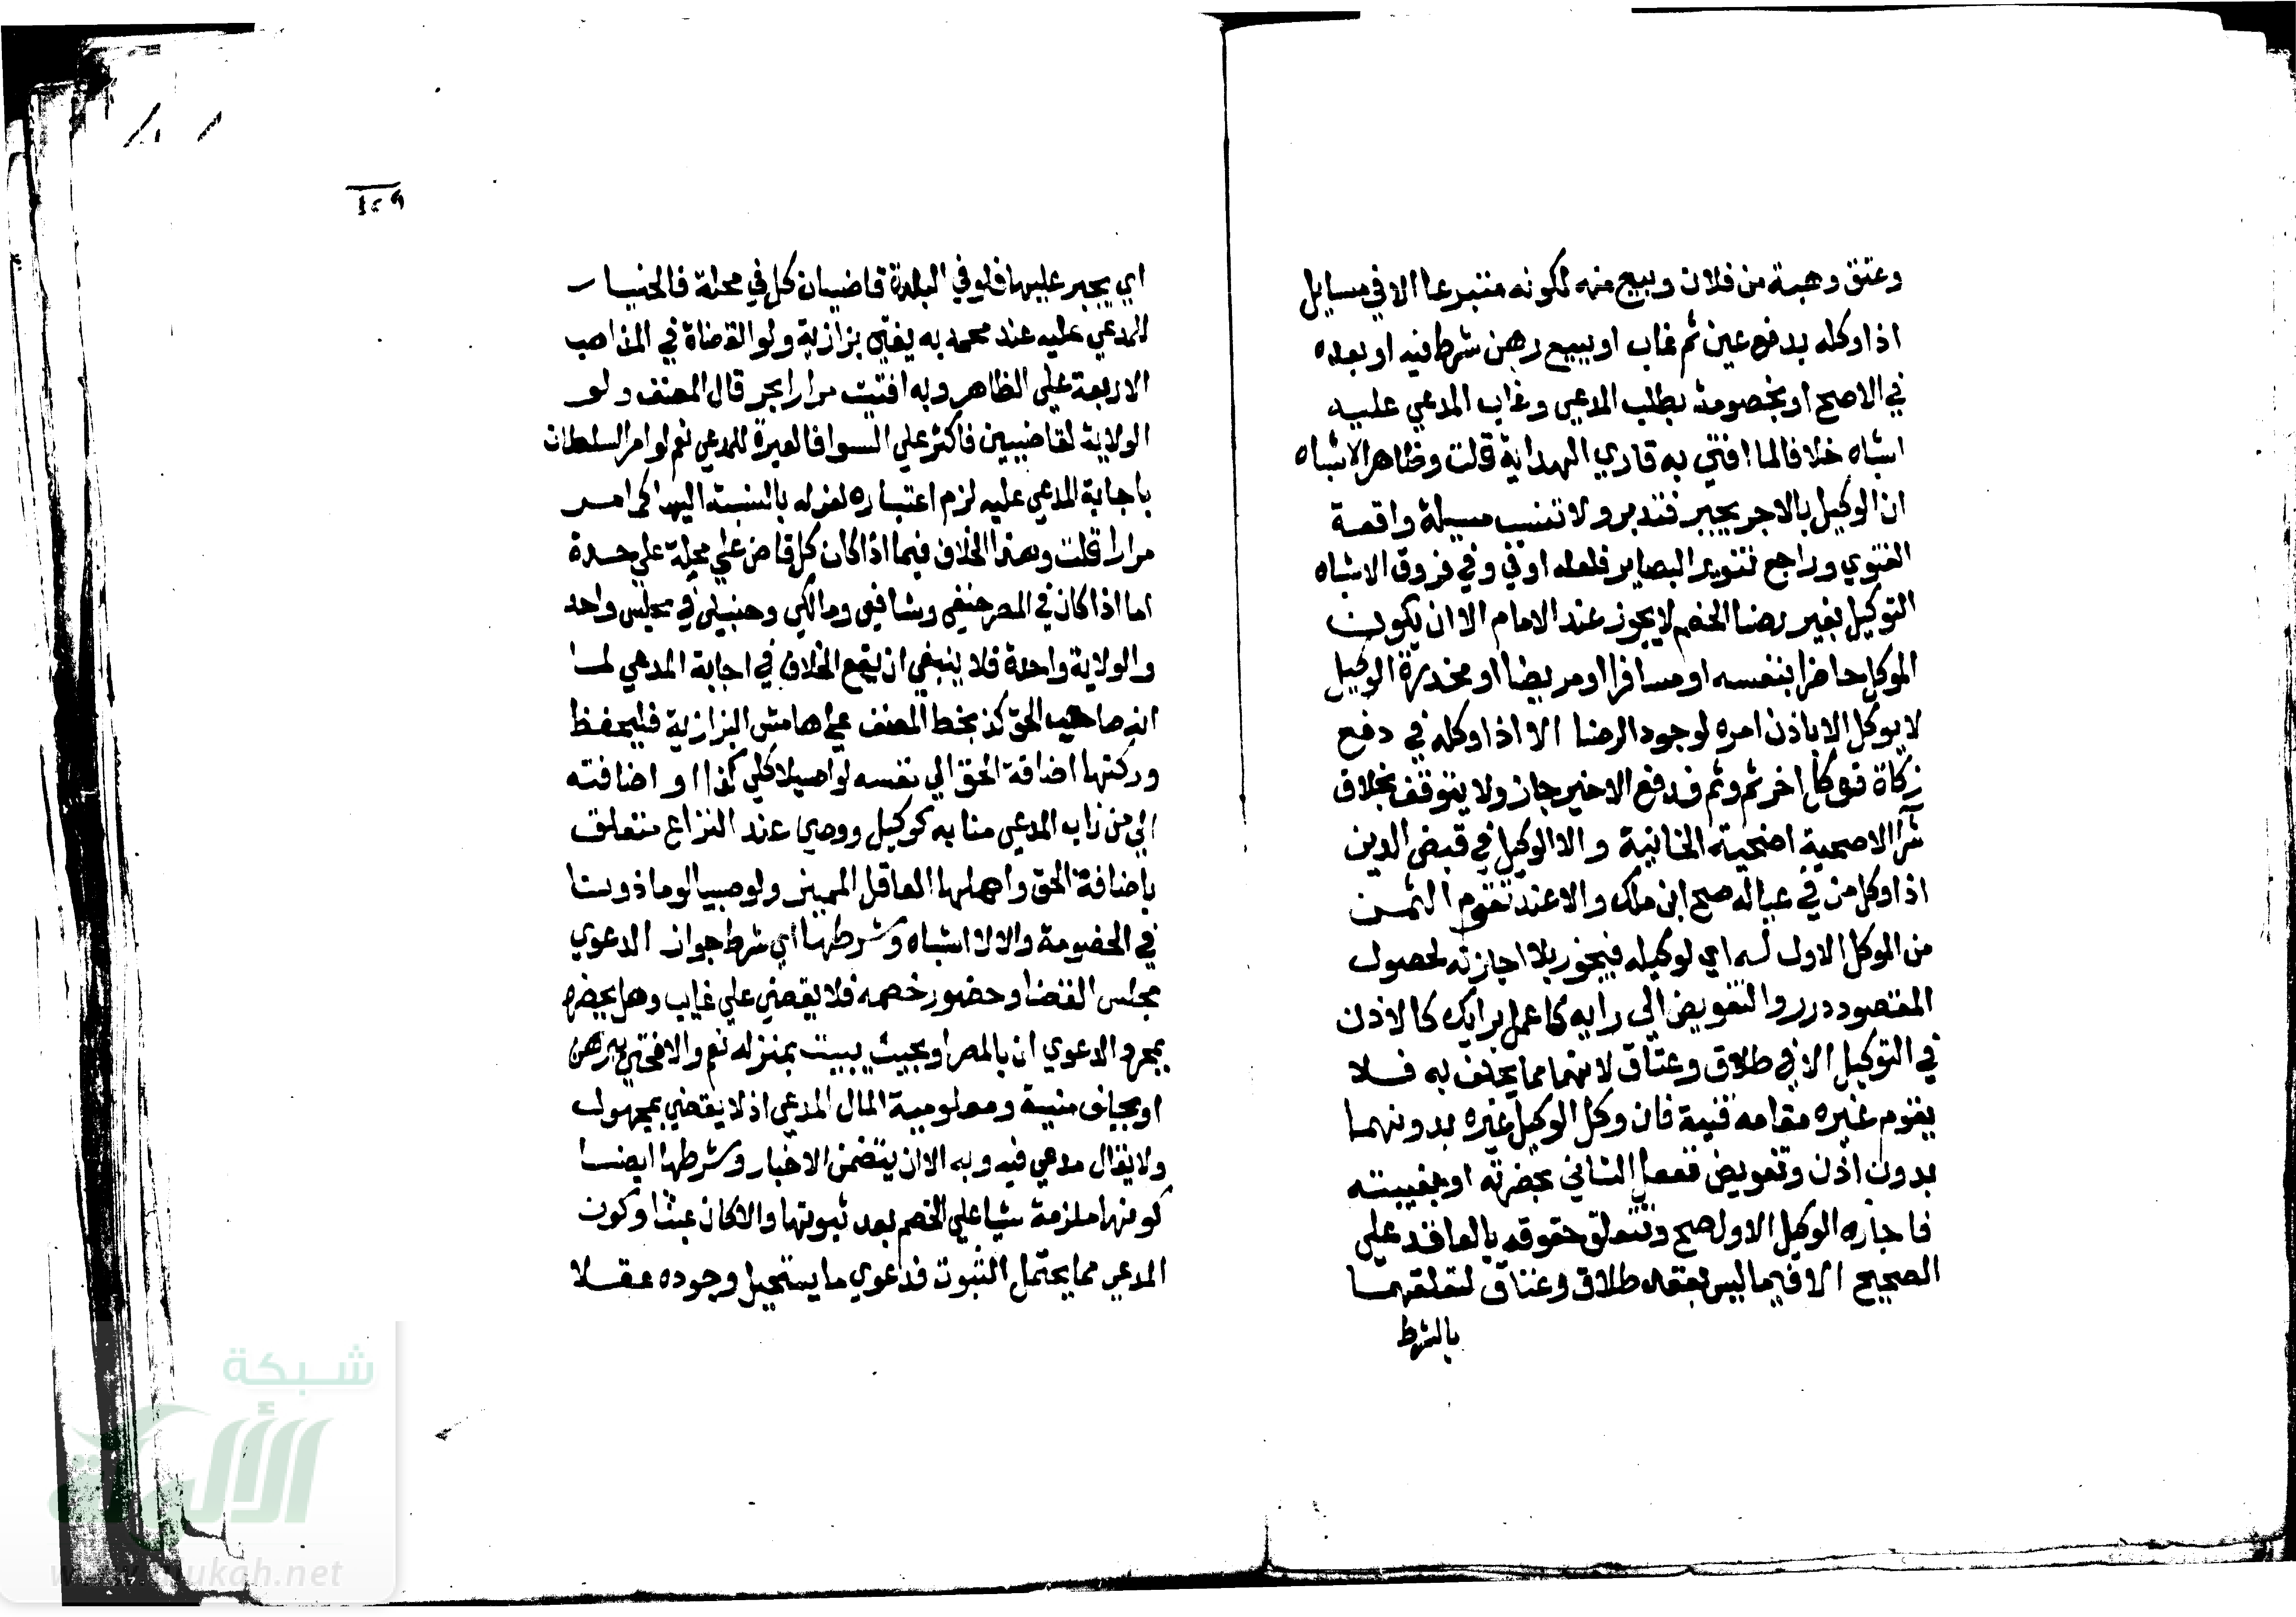 وعتق وهبة من فلان وبيع منه لكونه متبرعا الا في مسايل
اذا وكله بدفع عين ثم غاب او ببيع رهن شرط فيه او بعده
في الاصح او بخصومة بطلب المدعي وغاب المدعي عليه
اشباه خلافا لما افتي به قاري الهداية قلت وظاهر الاشباه
ان الوكيل بالاجر يجبر فتدبر ولا تنس مسيلة واقعة
الفتوي وراجع تنوير البصاير فلعله اوفي وفي فروق الاشباه
التوكيل بغير رضا الخصم لا يجوز عند الامام الا ان يكون
الموكل حاضرا بنفسه او مسافرا او مريضا او مخدرة الوكيل
لا يوكل الا باذن امره لوجود الرضا الا اذا وكله في دفع
زكاة فوكل اخر ثم وثم فدفع الاخير جاز ولا يتوقف بخلاف
شرا الاضحية اضحية الخانية والا الوكيل في قبض الدين
اذا وكل من في عياله صح ابن ملك والا عند تقوم الثمن
من الموكل الاول له اي لوكيله فيجوز بلا اجازته لحصول
المقصود درر والتفويض الي رايه كاعمل برايك كالاذن
في التوكيل الا في طلاق وعتاق لانهما مما يحلف به فلا
يقوم غيره مقامه قنية فان وكل الوكيل غيره بدونهما
بدون اذن وتفويض ففعل الثاني بحضرته او بغيبته
فاجازه الوكيل الاول صح وتتعلق حقوقه بالعاقد علي
الصحيح الا فيما ليس بعقد طلاق وعتاق لتعلقهما
بالشرط
١٢٩
اي يجبر عليها فلو في البلدة قاضيان كل في محلة فالخيار
للمدعي عليه عند محمد به يفتي بزازية ولو القضاة في المذاهب
الاربعة علي الظاهر وبه افتيت مرارا بحر قال المصنف ولو
الولاية لقاضيين فاكثر علي السوا فالعبرة للمدعي نعم لو امر السلطان
باجابة المدعي عليه لزم اعتباره لعزله بالنسبة اليها كما مر
مرارا قلت وهذا الخلاف فيما اذا كان كل قاض علي محلة علي حدة
اما اذا كان في المصر حنفي وشافعي ومالكي وحنبلي في مجلس واحد
والولاية واحدة فلا ينبغي ان يقع الخلاف في اجابة المدعي لما
انه صاحب الحق كذ بخط المصنف علي هامش البزازية فليحفظ
وركنها اضافة الحق الي نفسه لو اصيلا كلي كذا او اضافته
الي من ناب المدعي منابه كوكيل ووصي عند النزاع متعلق
باضافة الحق واهلها العاقل المميز ولو صبيا لو ماذونا
في الخصومة والا لا اشباه وشرطها اي شرط جواز الدعوي
مجلس القضا وحضور خصمه فلا يقضي علي غايب وهل يحضره
بمجرد الدعوي ان بالمصر او بحيث يبيت بمنزله نعم والا فحتي يبرهن
او يحلف منية ومعلومية المال المدعي اذ لا يقضي بمجهول
ولا يقال مدعي فيه وبه الا ان يتضمن الاخبار وشرطها ايضا
كونها ملزمة شيا علي الخصم بعد ثبوتها والا كان عبثا وكون
المدعي مما يحتمل الثبوت فدعوي ما يستحيل وجوده عقلا
شبكة
الألوكة
www.alukah.net